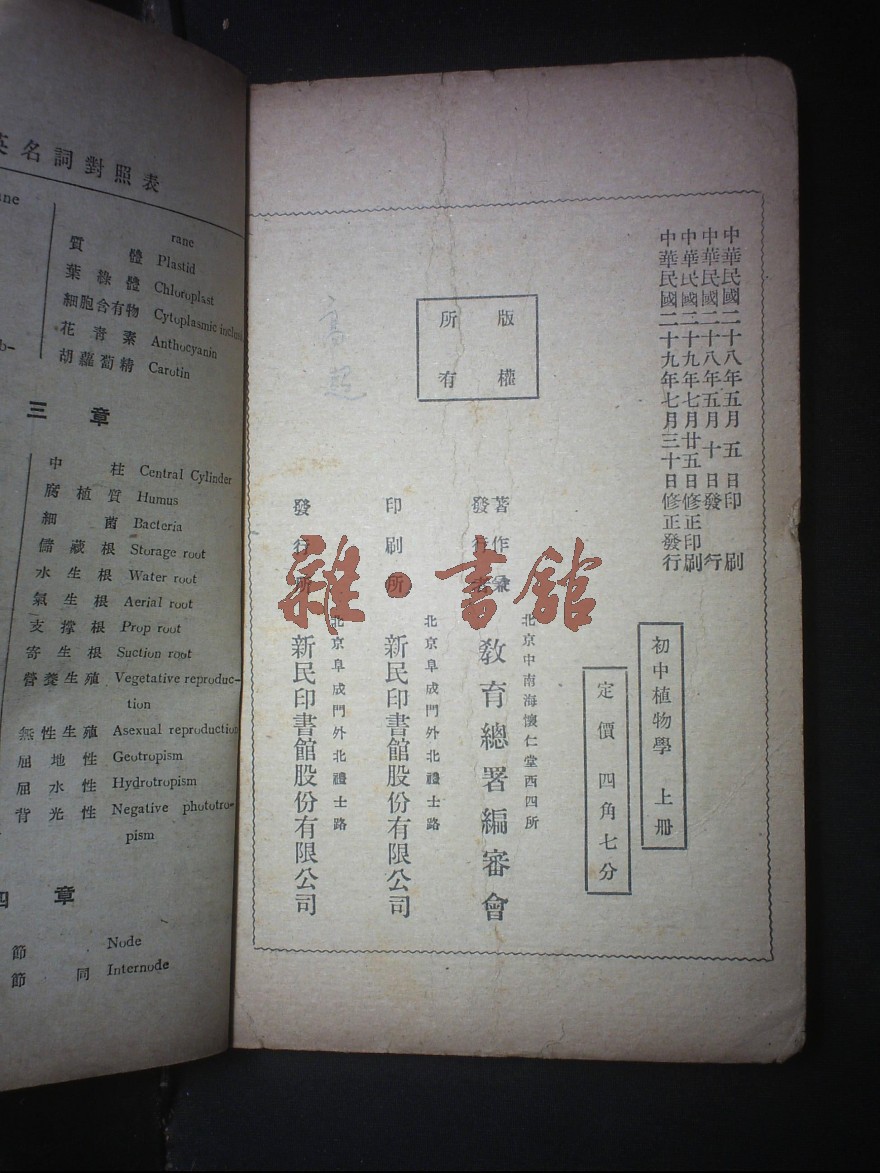 英名詞對照表
rane
質體 Plastid
葉綠體 Chloroplast
細胞含有物 Cytoplasmic
花青素 Anthocyanin
胡蘿蔔精 Carotin
三章
中柱 Central Cylinder
腐植質 Humus
細菌 Bacteria
儲藏根 Storage root
水生根 Water root
氣生根 Aerial root
支撐根 Prop root
寄生根 Suction root
營養生殖 Vegetative reproduc-
tion
無性生殖 Asexual reproduction
屈地性 Geotropism
屈水性 Hydrotropism
背光性 Negative phototro-
pism
四章
節 Node
節間 Internode
中華民國二十八年五月五日印刷
中華民國二十八年五月十日發行
中華民國二十九年七月廿五日修正印刷
中華民國二十九年七月三十日修正發行
初中植物學 上冊
定價四角七分
版權所有
著作兼發行者
北京中南海懷仁堂西四所
教育總署編審會
印刷所
北京阜成門外北禮士路
新民印書館股份有限公司
發行所
北京阜成門外北禮士路
新民印書館股份有限公司
雜·書館